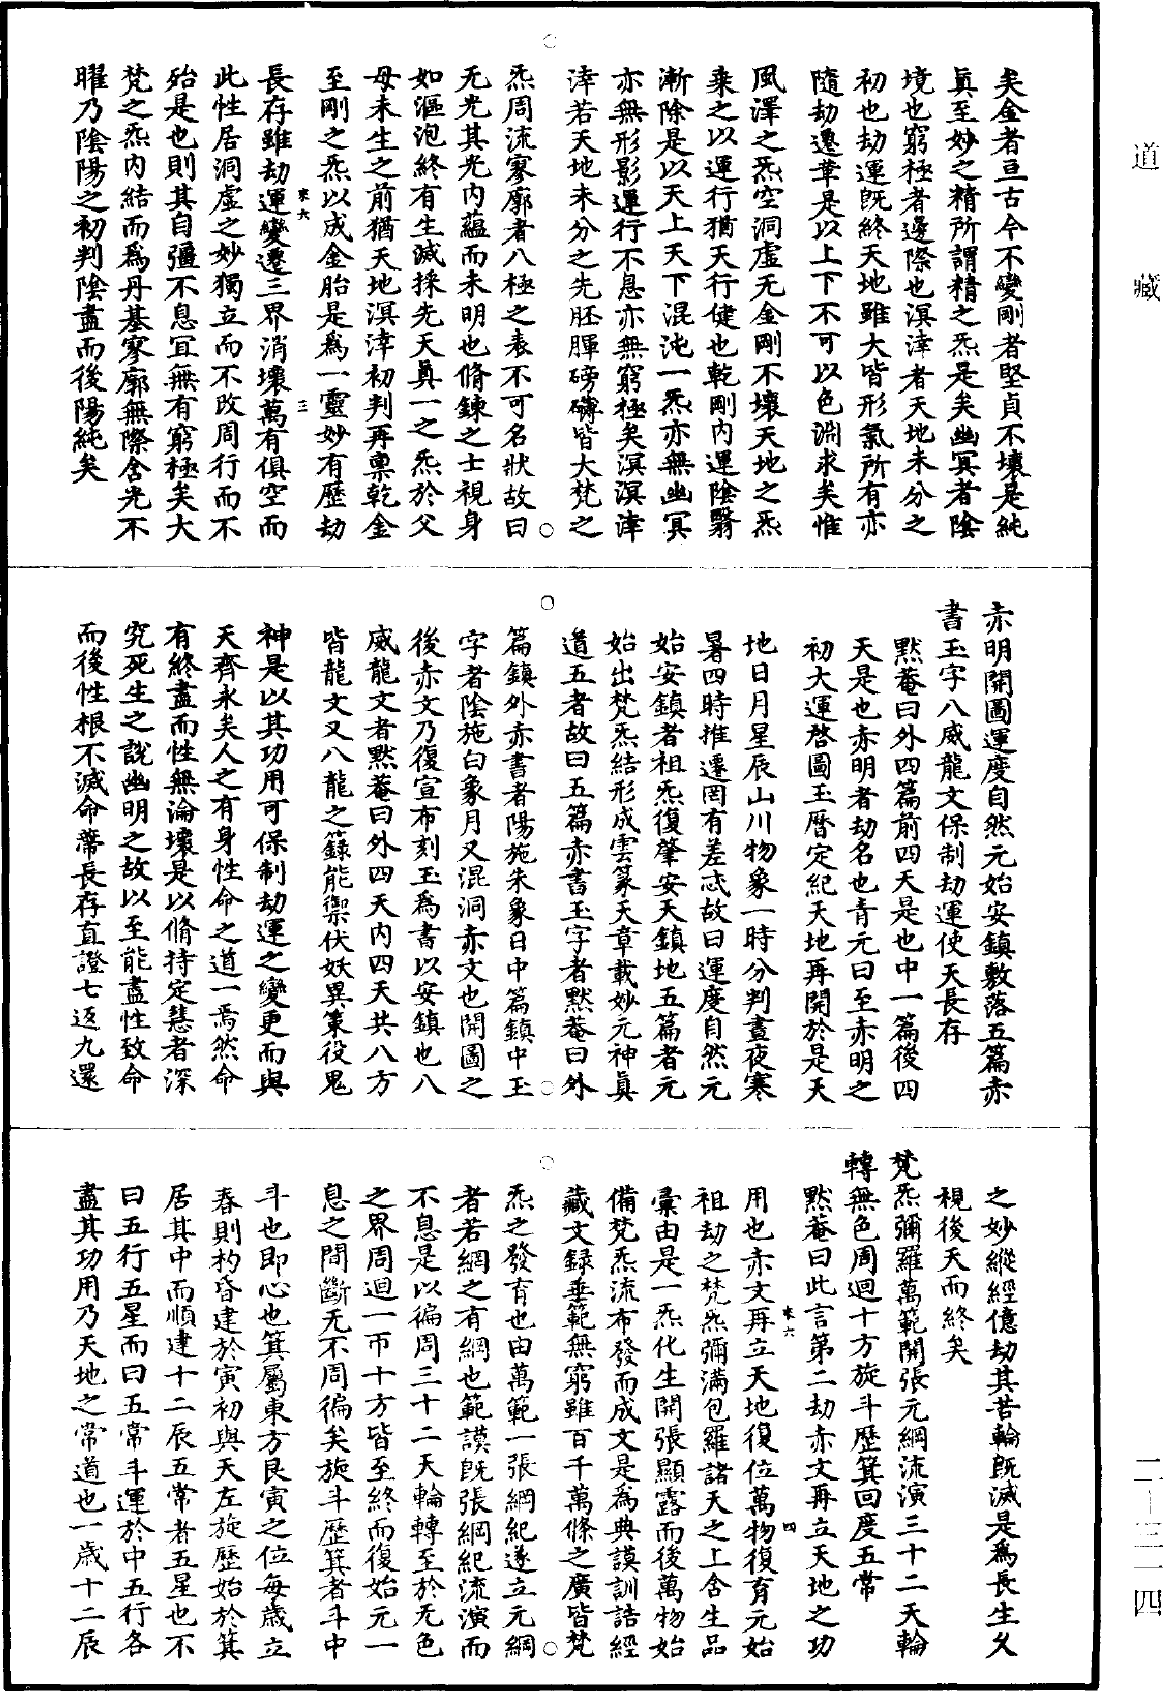 矣金者亘古今不變剛者堅貞不壞是純
眞至妙之精所謂精之炁是矣幽冥者陰
境也窮極者邊際也溟涬者天地未分之
初也劫運旣終天地雖大皆形氣所有亦
隨劫遷革是以上下不可以色淵求矣惟
風澤之炁空洞虛无金剛不壞天地之炁
乘之以運行猶天行健也乾剛內運陰翳
漸除是以天上天下混沌一炁亦無幽冥
亦無形影運行不息亦無窮極矣溟溟涬
涬若天地未分之先胚腪磅礴皆大梵之
炁周流寥廓者八極之表不可名狀故曰
无光其光內蘊而未明也脩鍊之士視身
如漚泡終有生滅採先天眞一之炁於父
母未生之前猶天地溟涬初判再稟乾金
至剛之炁以成金胎是爲一靈妙有歷劫
來六
三
長存雖劫運變遷三界消壞萬有俱空而
此性居洞虛之妙獨立而不改周行而不
殆是也則其自彊不息冝無有窮極矣大
梵之炁內結而爲丹基寥廓無際含光不
曜乃陰陽之初判陰盡而後陽純矣
赤明開圖運度自然元始安鎮敷落五篇赤
書玉字八威龍文保制劫運使天長存
默菴曰外四篇前四天是也中一篇後四
天是也赤明者劫名也青元曰至赤明之
初大運啓圖玉曆定紀天地再開於是天
地日月星辰山川物象一時分判晝夜寒
暑四時推遷罔有差忒故曰運度自然元
始安鎮者祖炁復肇安天鎮地五篇者元
始出梵炁結形成雲篆天章載妙元神眞
道五者故曰五篇赤書玉字者默菴曰外
篇鎮外赤書者陽施朱象日中篇鎮中玉
字者陰施白象月又混洞赤文也開圖之
後赤文乃復宣布刻玉爲書以安鎮也八
威龍文者默菴曰外四天內四天共八方
皆龍文又八龍之籙能禦伏妖異策役鬼
神是以其功用可保制劫運之變更而與
天齊永矣人之有身性命之道一焉然命
有終盡而性無淪壞是以脩持定慧者深
究死生之說幽明之故以至能盡性致命
而後性根不滅命蒂長存直證七返九還
之妙縱經億劫其苦輪旣滅是爲長生久
視後天而終矣
梵炁彌羅萬範開張元綱流演三十二天輪
轉無色周迴十方旋斗歷箕回度五常
默菴曰此言第二劫赤文再立天地之功
用也赤文再立天地復位萬物復育元始
來六
四
祖劫之梵炁彌滿包羅諸天之上含生品
彙由是一炁化生開張顯露而後萬物始
備梵炁流布發而成文是爲典謨訓誥經
藏文錄垂範無窮雖百千萬條之廣皆梵
炁之發育也由萬範一張綱紀遂立元綱
者若網之有綱也範謨旣張綱紀流演而
不息是以徧周三十二天輪轉至於无色
之界周迴一帀十方皆至終而復始元一
息之間斷无不周徧矣旋斗歷箕者斗中
斗也即心也箕屬東方艮寅之位每歲立
春則杓昏建於寅初與天左旋歷始於箕
居其中而順建十二辰五常者五星也不
曰五行五星而曰五常斗運於中五行各
盡其功用乃天地之常道也一歲十二辰
道藏
二-三一四